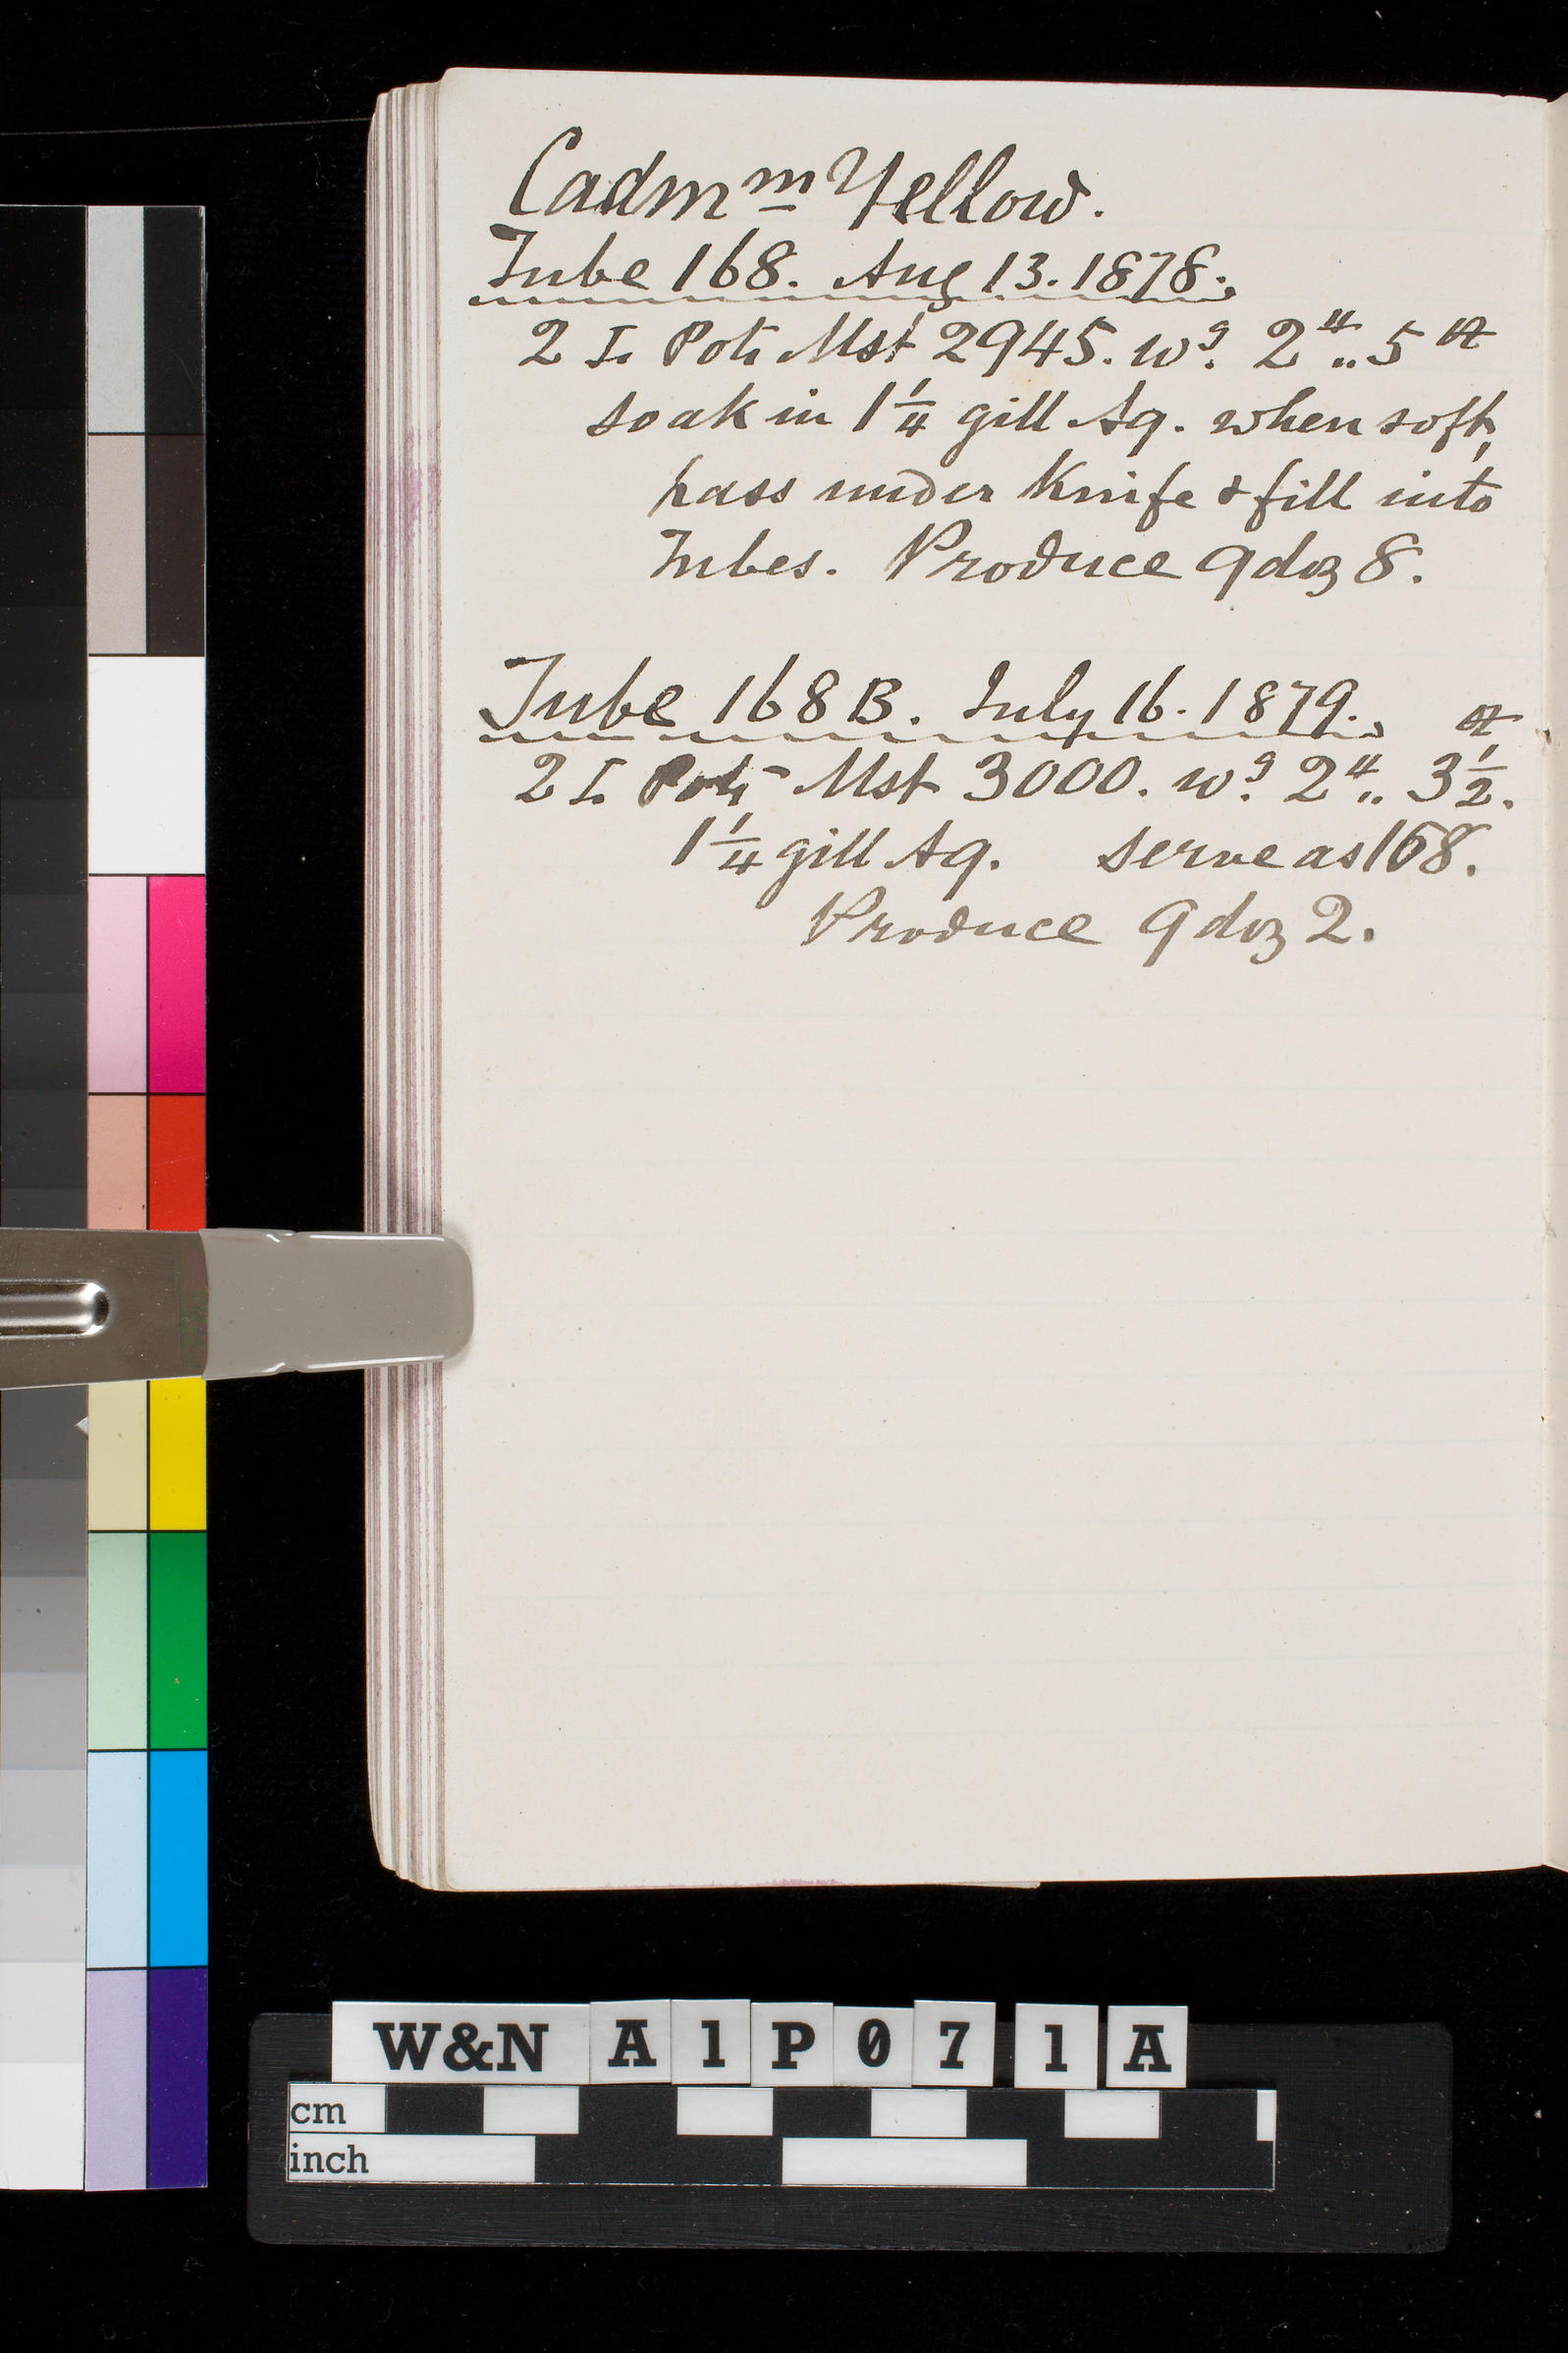 Cadmᵐ Yellow.
Tube 168. Aug 13. 1878.
2 I. Pots Mst 2945. wᵍ. 2 ℔ .. 5 oz
soak in 1 1/4 gill Aq. when soft,
pass under Knife & fill into
Tubes. Produce 9 doz 8.
Tube 168 B. July 16. 1879.
2 I. Pots Mst 3000. wᵍ. 2 ℔ .. 3 1/2 oz.
1 1/4 gill Aq. serve as 168.
Produce 9 doz 2.
W&N A 1 P 0 7 1 A
cm
inch